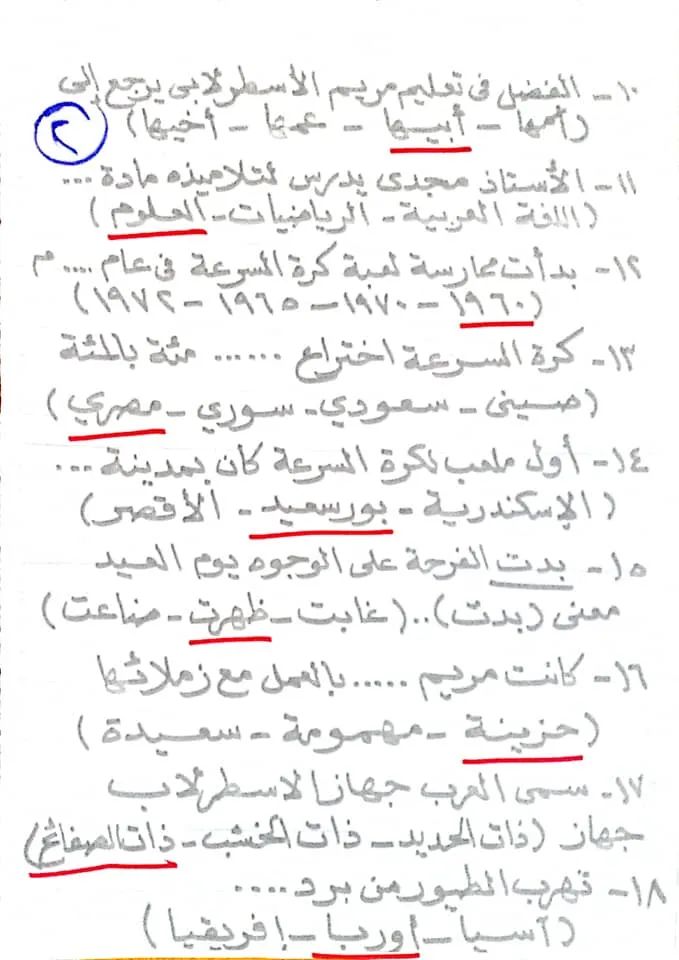 ١٠- الفضل فى تعليم مريم الأسطرلابى يرجع إلى
(أمها - أبيها - عمها - أخيها)
٢
١١- الأستاذ مجدى يدرس لتلاميذه مادة ...
(اللغة العربية - الرياضيات - العلوم)
١٢- بدأت ممارسة لعبة كرة السرعة فى عام .... م
(١٩٦٠ - ١٩٧٠ - ١٩٦٥ - ١٩٧٢)
١٣- كرة السرعة اختراع ...... مئة بالمئة
(صينى - سعودي - سوري - مصري)
١٤- أول ملعب لكرة السرعة كان بمدينة ...
(الإسكندرية - بورسعيد - الأقصر)
١٥- بدت الفرحة على الوجوه يوم العيد
معنى (بدت) .. (غابت - ظهرت - ضاعت)
١٦- كانت مريم ..... بالعمل مع زملائها
(حزينة - مهمومة - سعيدة)
١٧- سمى العرب جهاز الاسطرلاب
جهاز (ذات الحديد - ذات الخشب - ذات الصفائح)
١٨- تهرب الطيور من برد ....
(آسيا - أوربا - إفريقيا)